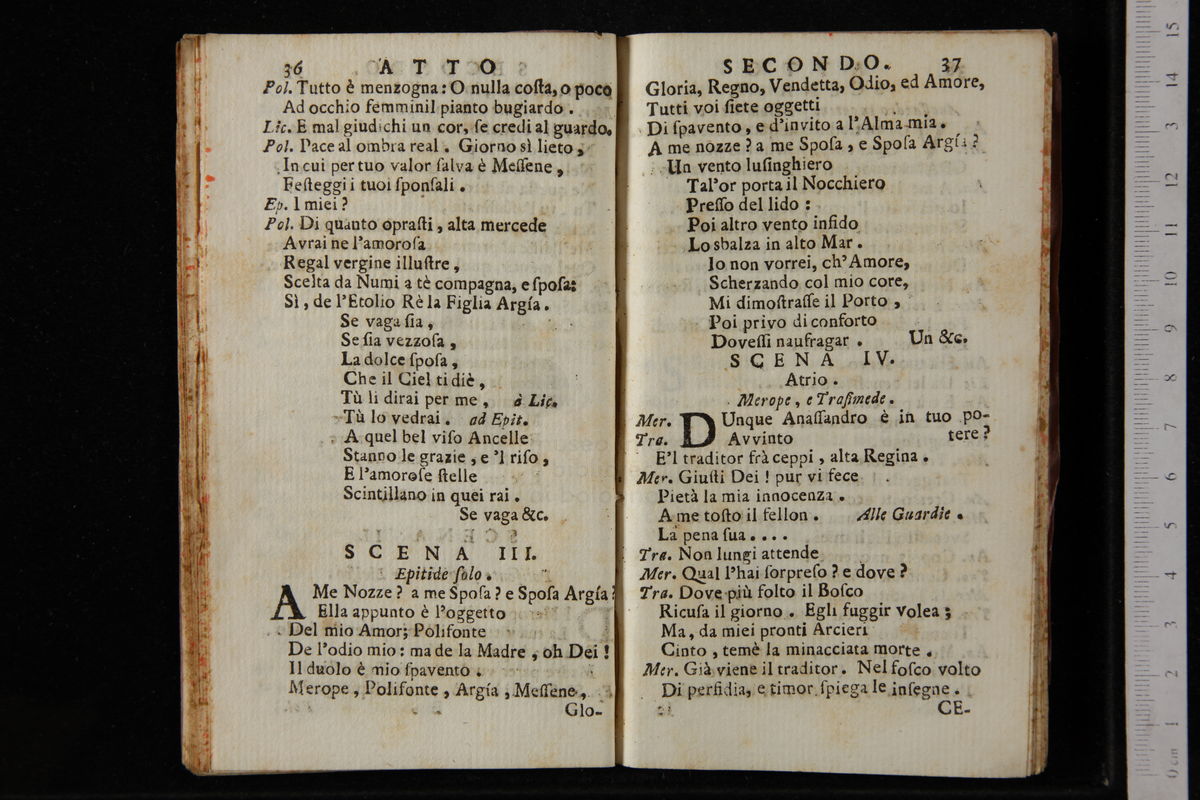 36 ATTO
Pol. Tutto è menzogna: O nulla coſta, o poco
Ad occhio femminil pianto bugiardo.
Lic. E mal giudichi un cor, ſe credi al guardo.
Pol. Pace al ombra real. Giorno sì lieto,
In cui per tuo valor ſalva è Meſſene,
Feſteggi i tuoi ſponſali.
Ep. I miei?
Pol. Di quanto opraſti, alta mercede
Avrai ne l'amoroſa
Regal vergine illuſtre,
Scelta da Numi a tè compagna, e ſpoſa:
Sì, de l'Etolio Rè la Figlia Argía.
Se vaga ſia,
Se ſia vezzoſa,
La dolce ſpoſa,
Che il Ciel ti diè,
Tù li dirai per me, à Lic.
Tù lo vedrai. ad Epit.
A quel bel viſo Ancelle
Stanno le grazie, e 'l riſo,
E l'amoroſe ſtelle
Scintillano in quei rai.
Se vaga &c.
SCENA III.
Epitide ſolo.
A Me Nozze? a me Spoſa? e Spoſa Argía?
Ella appunto è l'oggetto
Del mio Amor; Polifonte
De l'odio mio: ma de la Madre, oh Dei!
Il duolo è mio ſpavento.
Merope, Polifonte, Argía, Meſſene,
Glo-
SECONDO. 37
Gloria, Regno, Vendetta, Odio, ed Amore,
Tutti voi ſiete oggetti
Di ſpavento, e d'invito a l'Alma mia.
A me nozze? a me Spoſa, e Spoſa Argía?
Un vento luſinghiero
Tal'or porta il Nocchiero
Preſſo del lido:
Poi altro vento infido
Lo sbalza in alto Mar.
Io non vorrei, ch'Amore,
Scherzando col mio core,
Mi dimoſtraſſe il Porto,
Poi privo di conforto
Doveſſi naufragar. Un &c.
SCENA IV.
Atrio.
Merope, e Traſimede.
Mer. DUnque Anaſſandro è in tuo po-
Tra. Avvinto tere?
E'l traditor frà ceppi, alta Regina.
Mer. Giuſti Dei! pur vi fece
Pietà la mia innocenza.
A me toſto il fellon. Alle Guardie.
La pena ſua....
Tra. Non lungi attende
Mer. Qual l'hai ſorpreſo? e dove?
Tra. Dove più folto il Boſco
Ricuſa il giorno. Egli fuggir volea;
Ma, da miei pronti Arcieri
Cinto, temè la minacciata morte.
Mer. Già viene il traditor. Nel foſco volto
Di perfidia, e timor ſpiega le inſegne.
CE-
0 cm 1 2 3 4 5 6 7 8 9 10 11 12 13 14 15